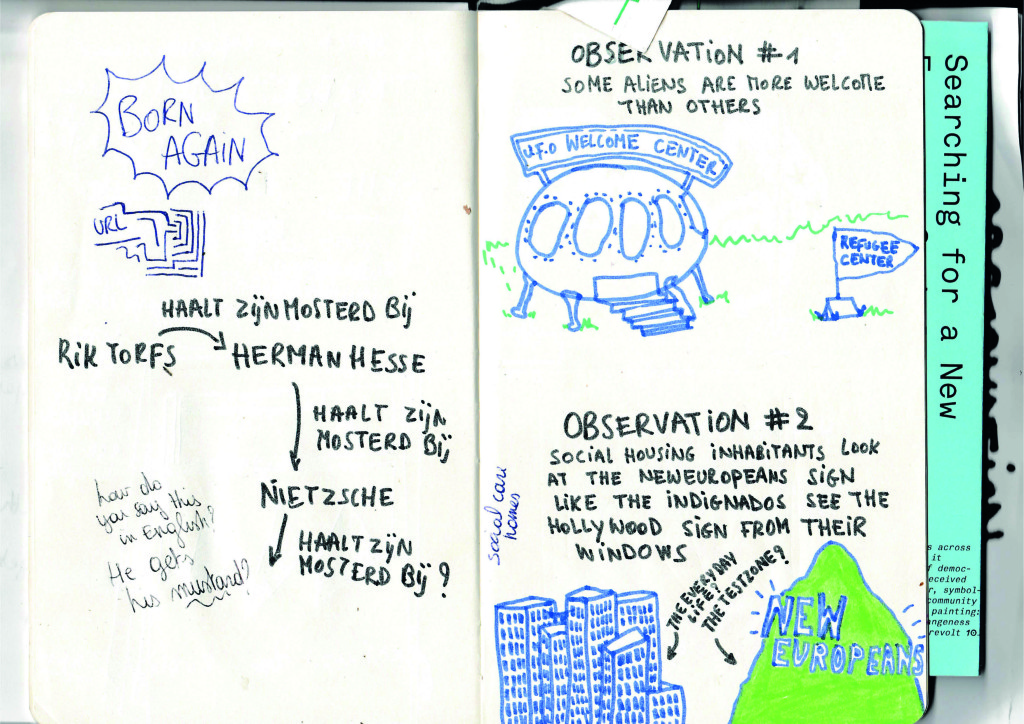 BORN
AGAIN
URL
HAALT ZIJN MOSTERD BIJ
RIK TORFS
HERMAN HESSE
HAALT ZIJN
MOSTERD BIJ
NIETZSCHE
HAALT ZIJN
MOSTERD BIJ?
how do
you say this
in English?
He gets
his mustard?
OBSERVATION #1
SOME ALIENS ARE MORE WELCOME
THAN OTHERS
U.F.O WELCOME CENTER
REFUGEE
CENTER
OBSERVATION #2
SOCIAL HOUSING INHABITANTS LOOK
AT THE NEWEUROPEANS SIGN
LIKE THE INDIGNADOS SEE THE
HOLLYWOOD SIGN FROM THEIR
WINDOWS
social
homes
THE EVERYDAY
LIFE?
THE TESTZONE?
NEW
EUROPEANS
Searching for a New
s across
it
f democ-
eceived
r, symbol-
community
painting:
angeness
revolt 10.